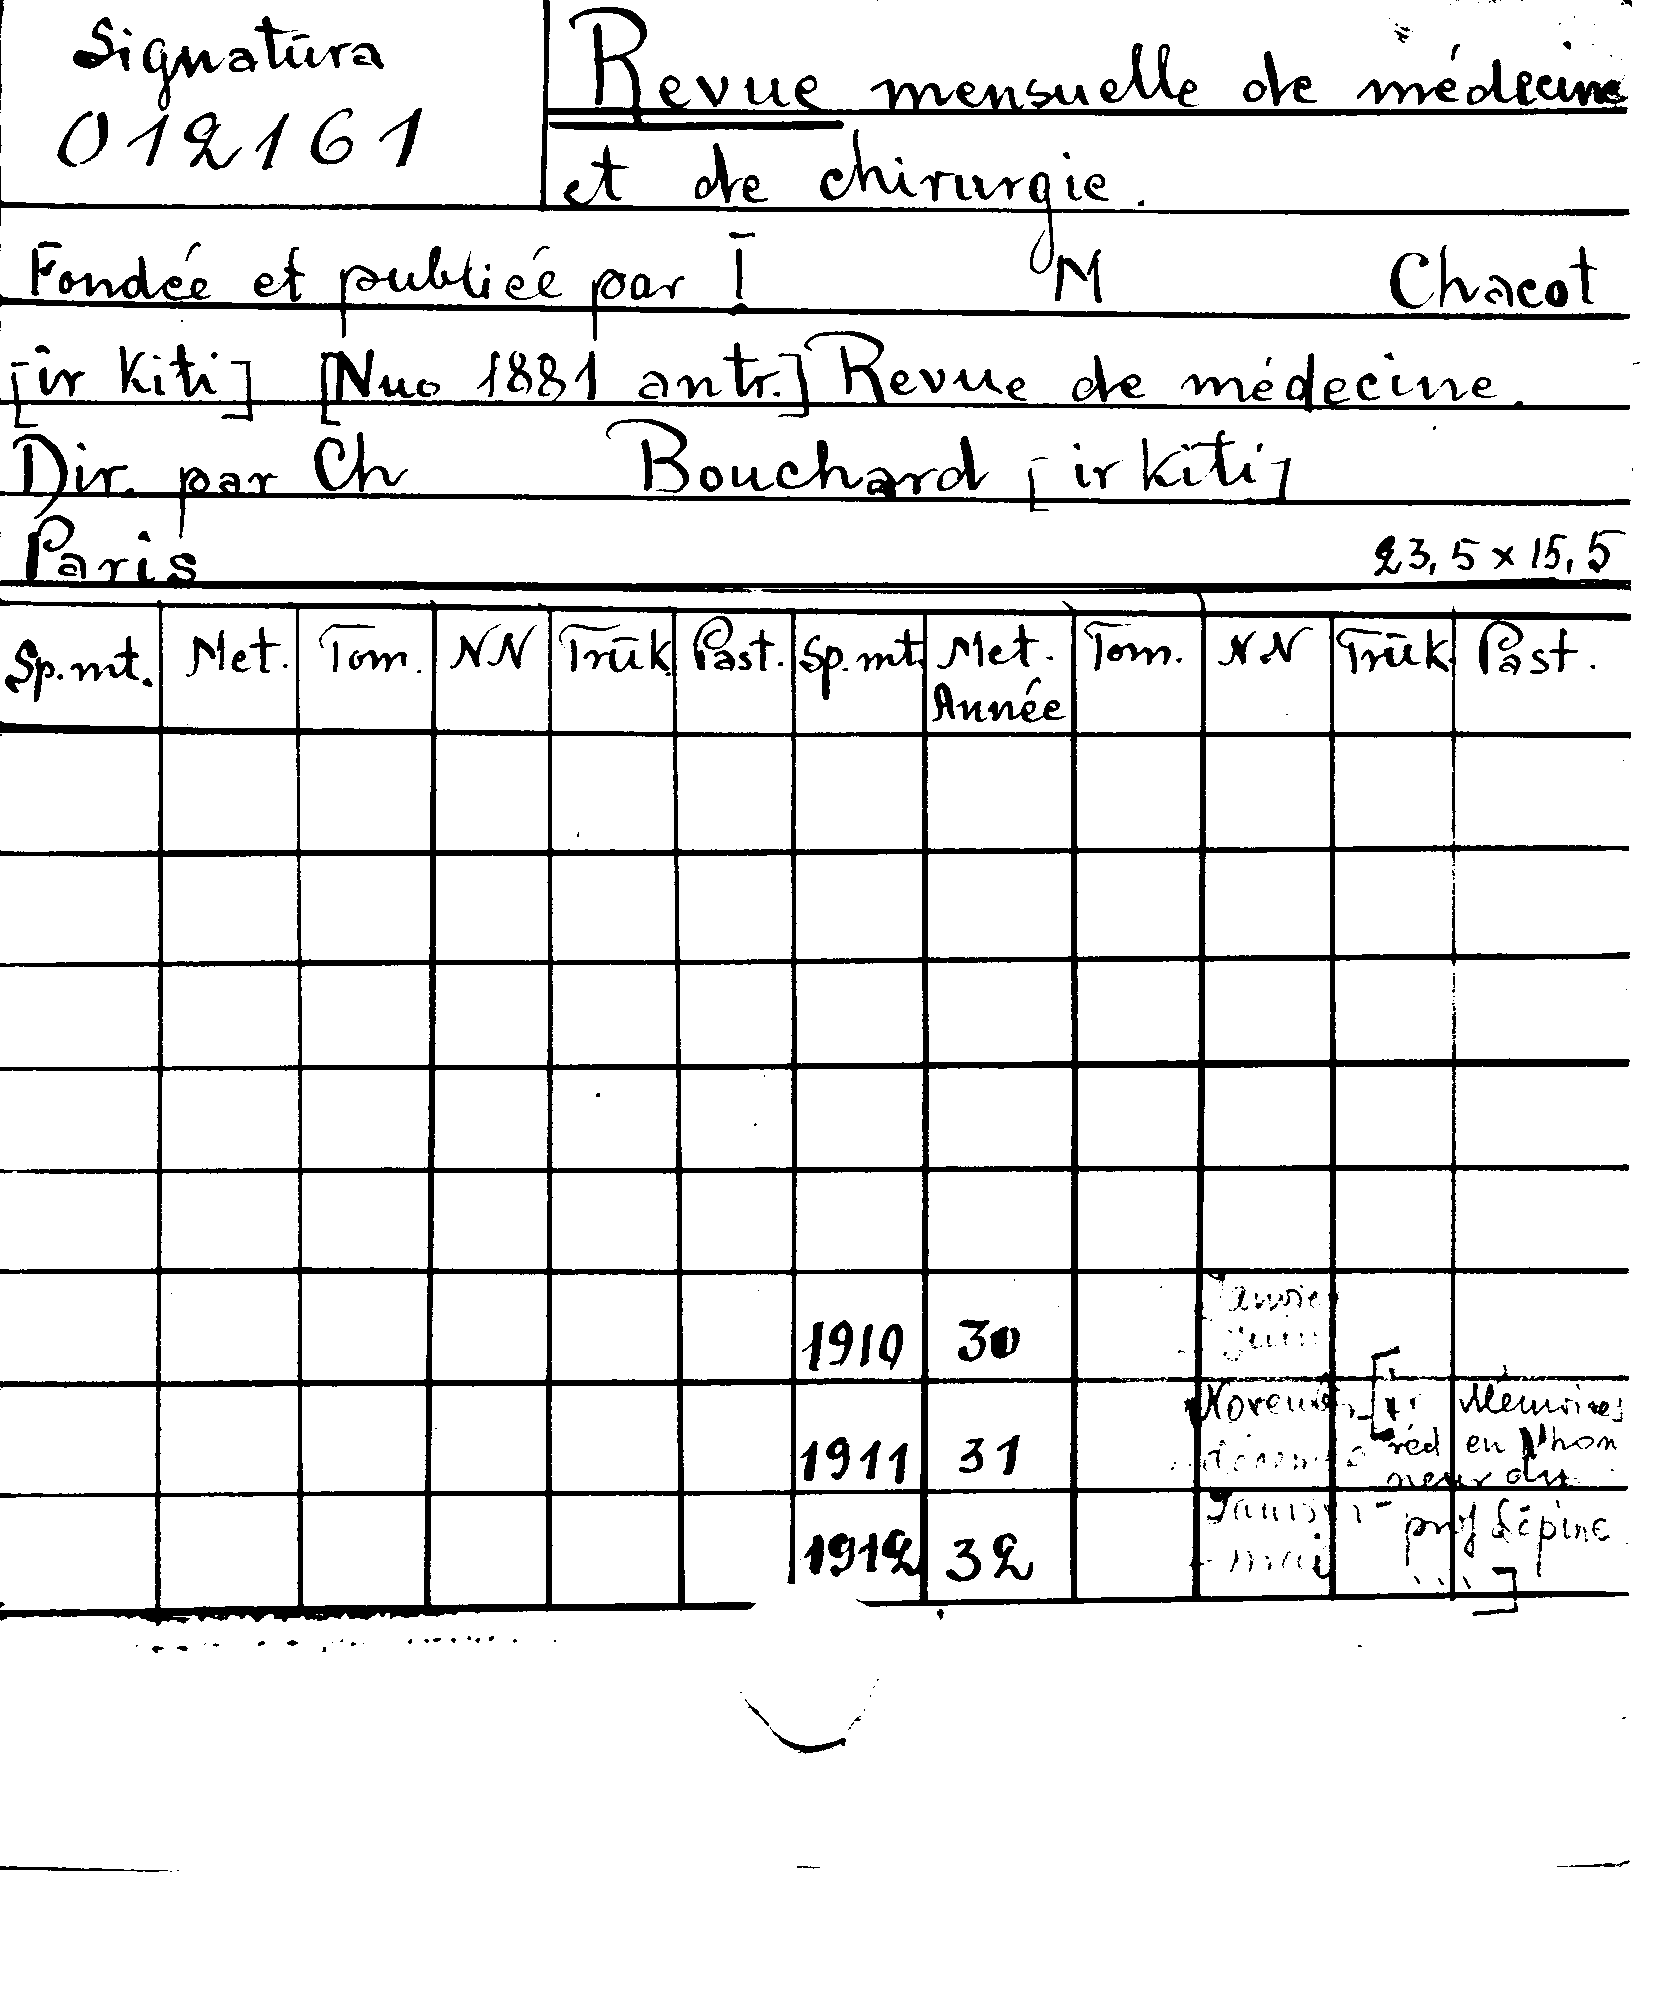 Signatūra
012161
Revue mensuelle de médecine
et de chirurgie.
Fondée et publiée par I M Chacot
[ir kiti] [Nuo 1881 antr.] Revue de médecine.
Dir. par Ch Bouchard [ir kiti]
Paris 23,5 x 15,5
Sp.mt. Met. Tom. NN Trūk Past. Sp.mt. Met. Année Tom. NN Trūk. Past.
1910 30
1911 31 Mémoires
réd en l'hon
neur du
1912 32 prof Lépine
mai ...]